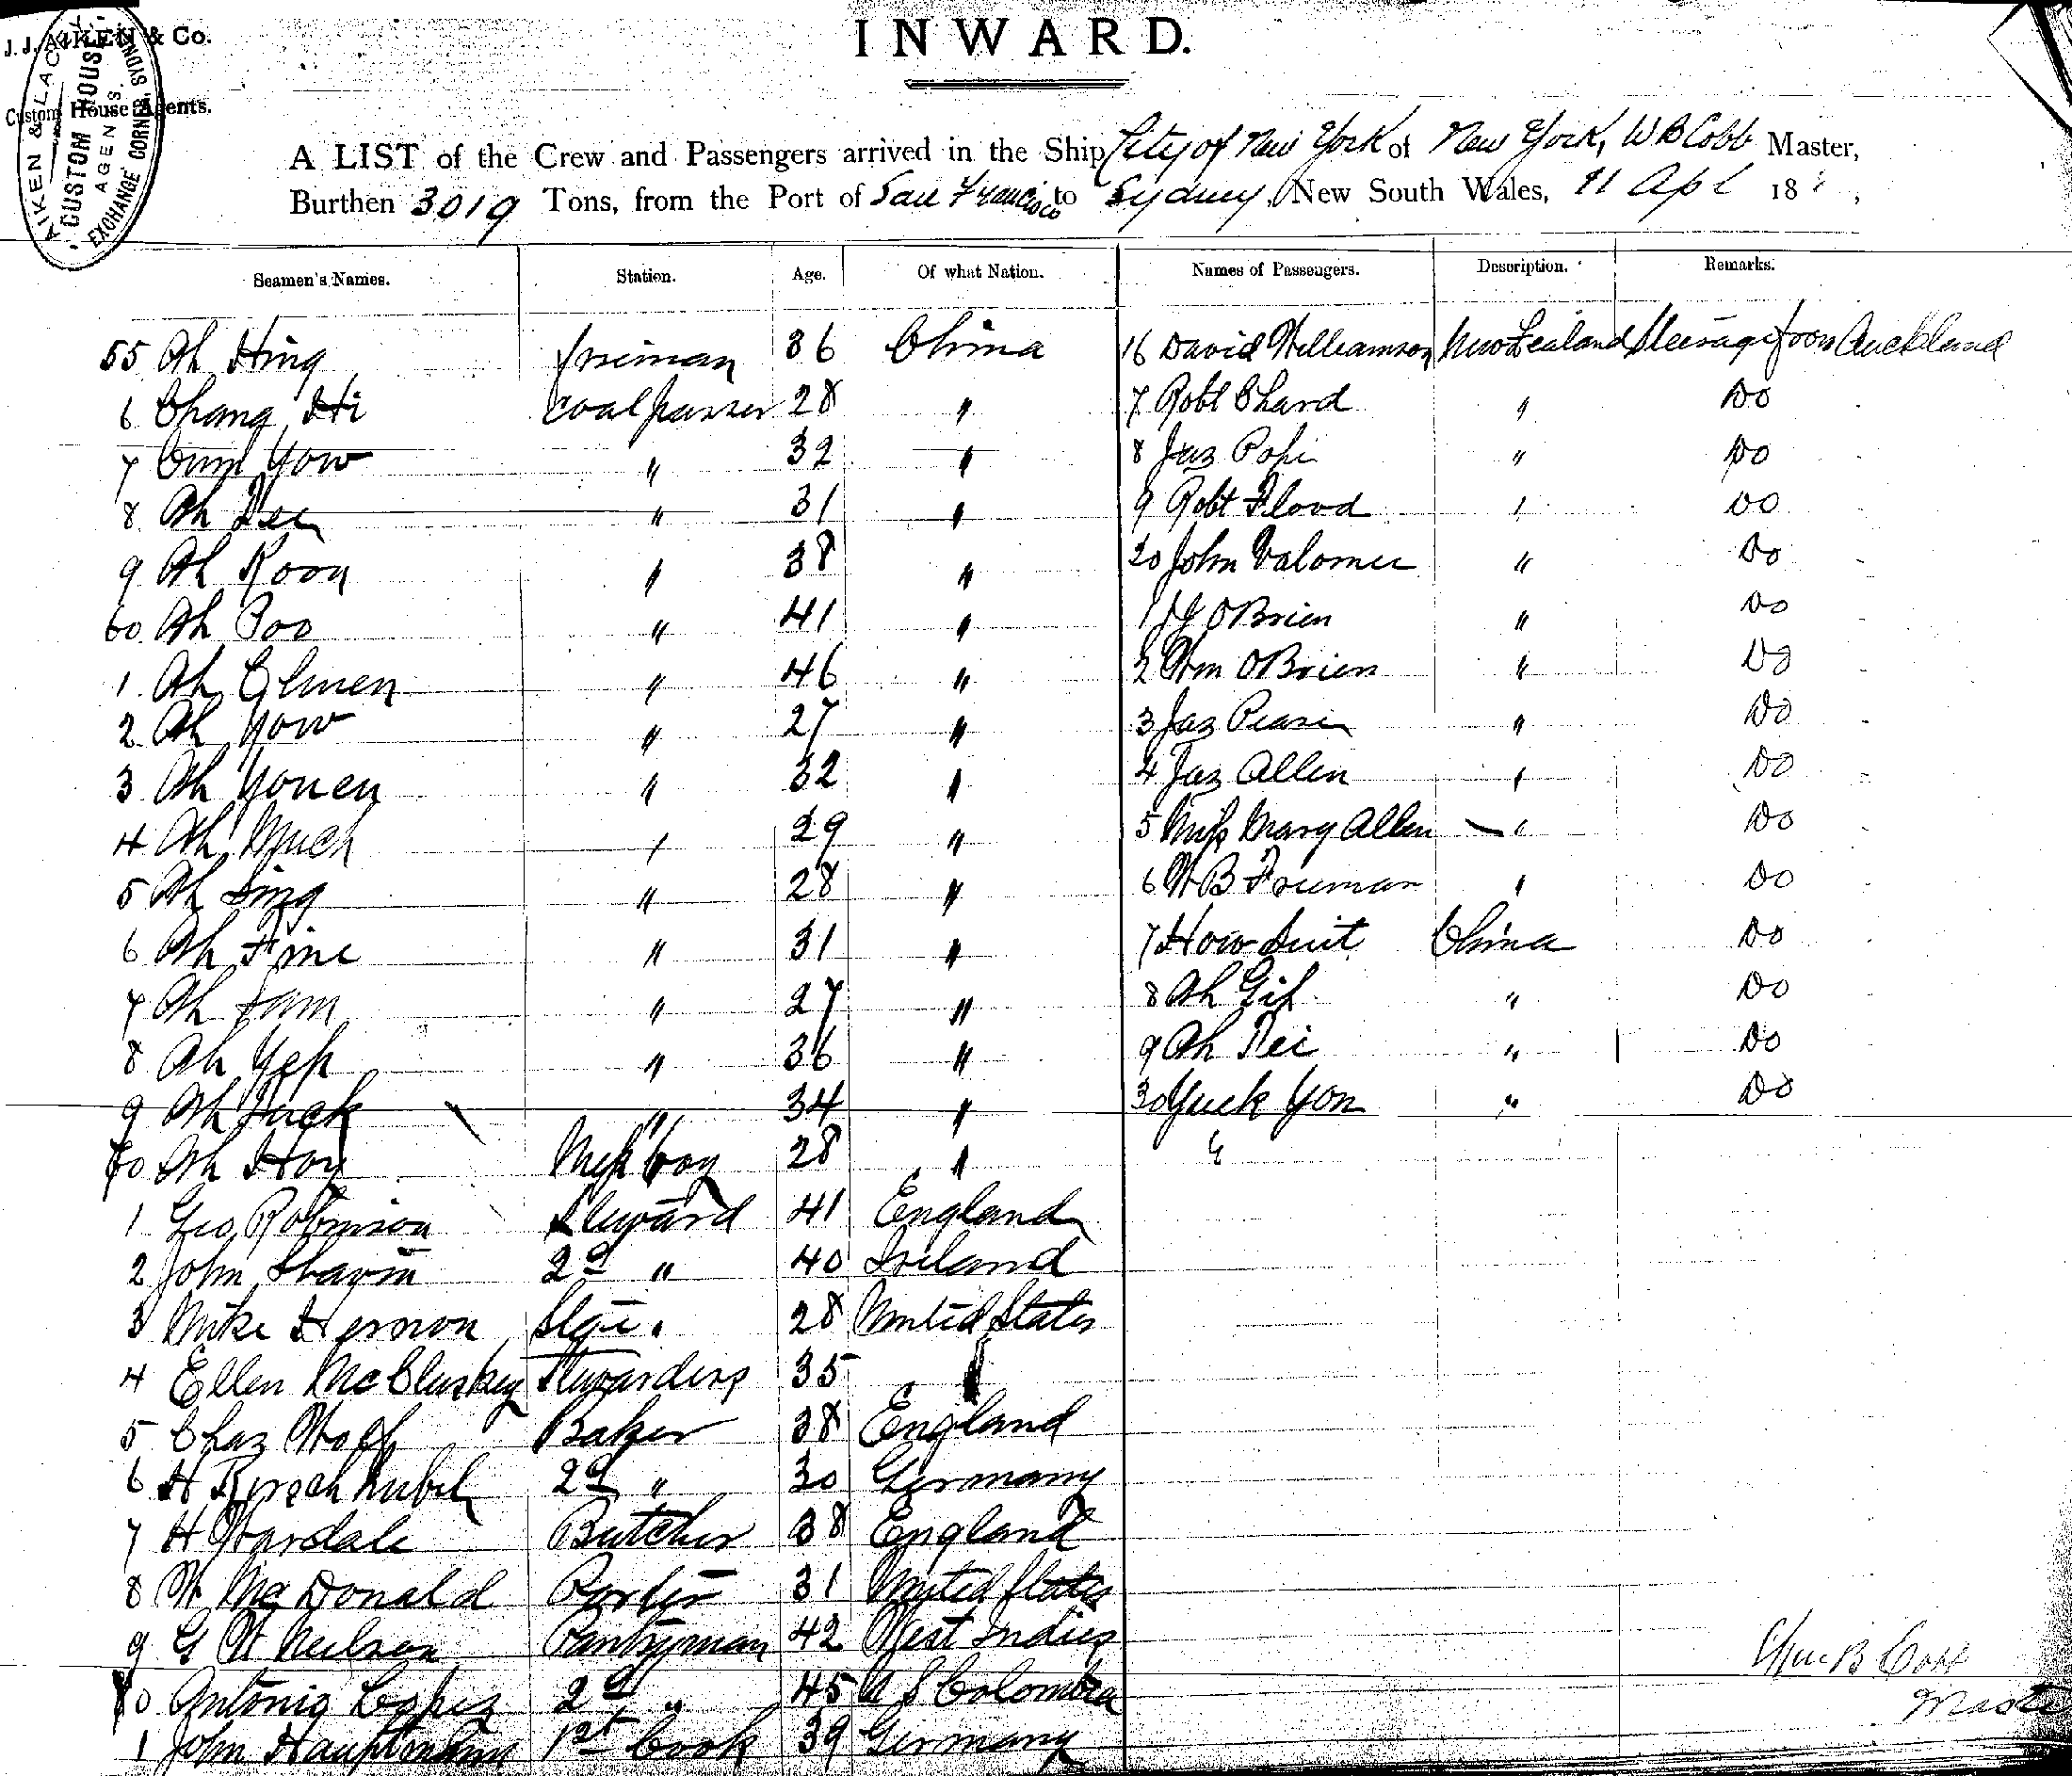 J. J. AIKEN & Co.
Custom House Agents.
AIKEN & LACY
CUSTOM HOUSE
AGENTS
EXCHANGE CORNER, SYDNEY
INWARD.
A LIST of the Crew and Passengers arrived in the Ship City of New York of New York, W B Cobb Master,
Burthen 3019 Tons, from the Port of San Francisco to Sydney, New South Wales, 11 Apl 188 ,
Seamen's Names. Station. Age. Of what Nation. Names of Passengers. Description. Remarks.
55 Ah Hing fireman 36 China 16 David Williamson New Zealand Steerage from Auckland
6 Chang Hi coal passer 28 " 7 Robt Shard " Do
7 Cum Yow " 32 " 8 Jas Pope " Do
8 Ah " 31 " 9 Robt Flood " Do
9 Ah Koon " 38 " 20 John " Do
60 Ah Poo " 41 " 1 O'Brien " Do
1 Ah " 46 " 2 Wm O'Brien " Do
2 Ah Yow " 27 " 3 Jas " Do
3 Ah Youen " 32 " 4 Jas Allen " Do
4 Ah Much " 29 " 5 Miss Mary Allen " Do
5 Ah Sing " 28 " 6 W B Freeman " Do
6 Ah Fine " 31 " 7 How Suit China Do
7 Ah Sam " 27 " 8 Ah " Do
8 Ah Yep " 36 " 9 Ah " Do
9 Ah " 34 " 30 Yuck Yon " Do
70 Ah Hoy Mess boy 28 " "
1 Geo Robinson Steward 41 England
2 John Slavin 2d " 40 Ireland
3 Mike Hernon 28 United States
4 Ellen McCluskey Stewardess 35 "
5 Chas Baker 38 England
6 H 2d " 30 Germany
7 H Wardale Butcher 38 England
8 W McDonald Porter 31 United States
9 G W Neilson Pantryman 42 West Indies
80 Antonio Lopez 2d " 45 U S Colombia
1 John Hauptmann 1st Cook 39 Germany
Wm B Cobb
Master